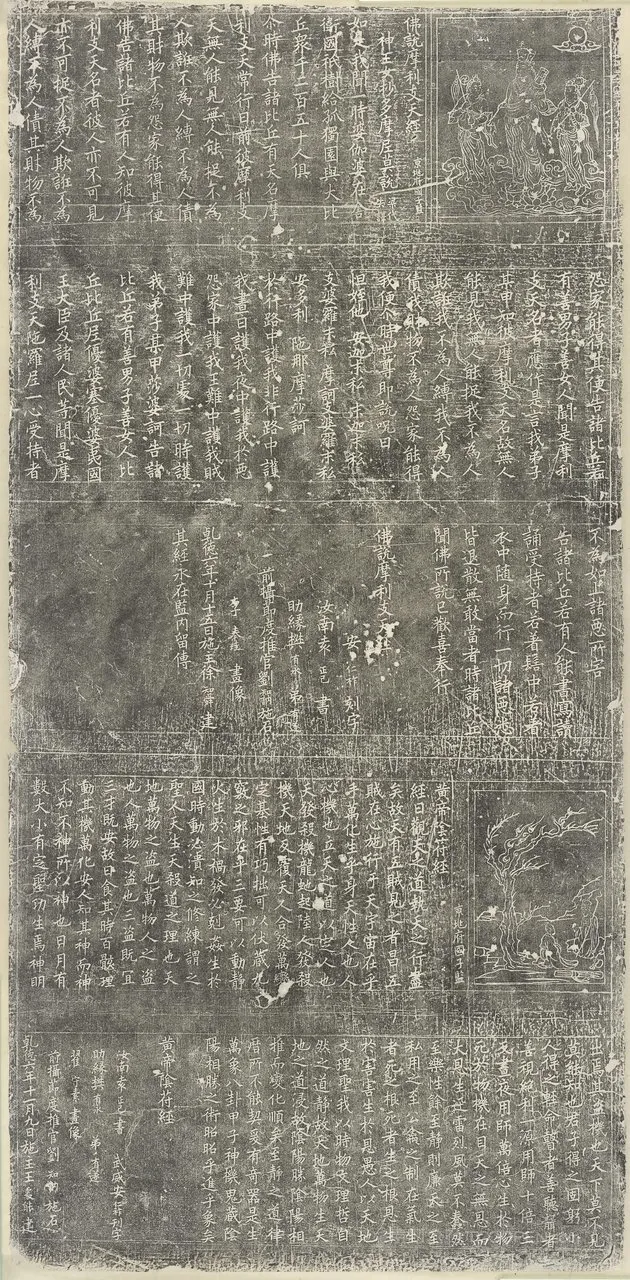 京兆府國子監
佛說摩利支天經
神王女抄多摩尼莫說
如是我聞一時婆伽婆在舍
衛國祇樹給孤獨園與大比
丘眾千二百五十人俱
尒時佛告諸比丘有天名摩
利支天常行日前彼摩利支
天無人能見無人能捉不為
人欺誑不為人縛不為人債
其財物不為怨家能得其便
佛告諸比丘若有人知彼摩
利支天名者彼人亦不可見
亦不可捉不為人欺誑不為
人縛不為人債其財物不為
怨家能得其便告諸比丘若
有善男子善女人聞是摩利
支天名者應作是言我弟子
某甲知彼摩利支天名故無人
能見我無人能捉我不為人
欺誑我不為人縛我不為人
債我財物不為人怨家能得
我便尒時世尊即說呪曰
怛姪他 安迦末私 末迦末私
支婆羅末私 摩訶支婆羅末私
安多利 陁那摩莎訶
於行路中護我非行路中護
我晝日護我夜中護我於惡
怨家中護我王難中護我賊
難中護我一切處一切時護
我弟子某甲莎婆訶告諸
比丘若有善男子善女人比
丘比丘尼優婆塞優婆夷國
王大臣及諸人民等聞是摩
利支天陁羅尼一心受持者
不為如上諸惡所害
告諸比丘若有人能書寫讀
誦受持者若著髻中若著
衣中隨身而行一切諸惡悉
皆退散無敢當者時諸比丘
聞佛所說已歡喜奉行
佛說摩利支天經
安 刻字
汝南袁 書
助緣
前攝節度推官劉 施石
李 畫像
乾德六年十月十五日施主徐 建
其經永在監內留傳
黃帝陰符經
京兆府國子監
經曰觀天之道執天之行盡
矣故天有五賊見之者昌五
賊在心施行于天宇宙在乎
手萬化生乎身天性人也人
心機也立天之道以定人也
天發殺機龍地起陸人發殺
機天地反覆天人合發萬變
定基性有巧拙可以伏藏九
竅之邪在乎三要可以動靜
火生於木禍發必剋姦生於
國時動必潰知之修練謂之
聖人天生天殺道之理也天
地萬物之盜也萬物人之盜
也人萬物之盜也三盜既宜
三才既安故曰食其時百骸理
動其機萬化安人知其神而神
不知不神所以神也日月有
數大小有定聖功生焉神明
出焉其盜機也天下莫不見
莫能知也君子得之固躬小
人得之輕命瞽者善聽聾者
善視絕利一源用師十倍三
反晝夜用師萬倍心生於物
死於物機在目天之無恩而
大恩生迅雷烈風莫不蠢然
至樂性餘至靜則廉天之至
私用之至公禽之制在氣生
者死之根死者生之根恩生
於害害生於恩愚人以天地
文理聖我以時物文理哲自
然之道靜故天地萬物生天
地之道浸故陰陽勝陰陽相
推而變化順矣至靜之道律
曆所不能契爰有奇器是生
萬象八卦甲子神機鬼藏陰
陽相勝之術昭昭乎進乎象矣
黃帝陰符經
汝南袁 書 武威安 刻字
助緣
翟 畫像
前攝節度推官劉 施石
乾德六年十一月九日施主王 建